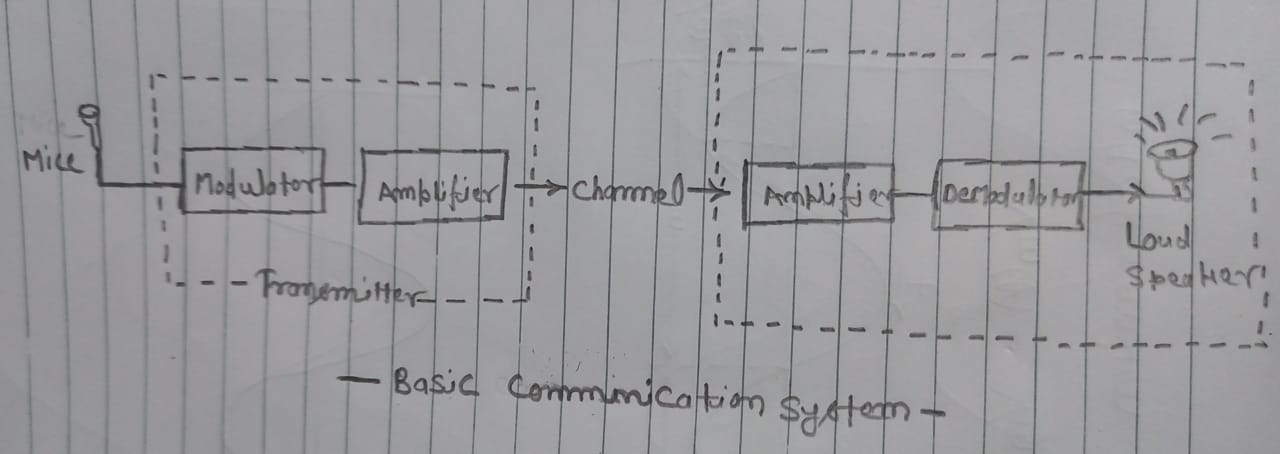 Mice
Modulator
Amplifier
Channel
Amplifier
Demodulator
Loud
Speaker
Transmitter
- Basic Communication System -